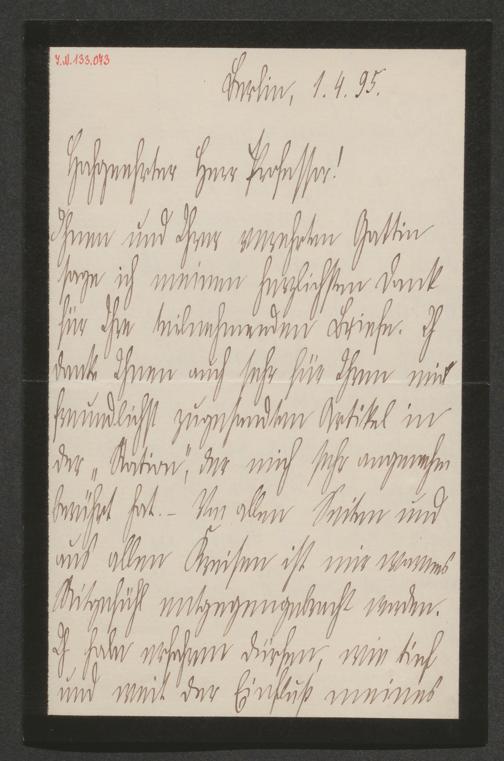 Y.N.133.043
Berlin, 1.4.95.
Hochgeehrter Herr Professor!
Ihnen und Ihrer verehrten Gattin
sage ich meinen herzlichsten Dank
für Ihre teilnehmenden Briefe. Ich
danke Ihnen auch sehr für Ihren mir
freundlichst zugesendeten Artikel in
der „Nation", der mich sehr angenehm
berührt hat. – Von allen Seiten und
aus allen Kreisen ist mir warmes
Mitgefühl entgegengebracht worden.
Ich habe erfahren dürfen, wie tief
und weit der Einfluß meines